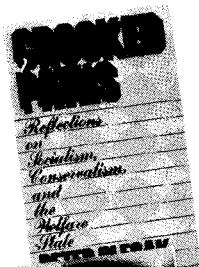 CROOKED
PATHS
Reflections
on
Socialism,
Conservatism,
and
the
Welfare
State
PETER CLECAK